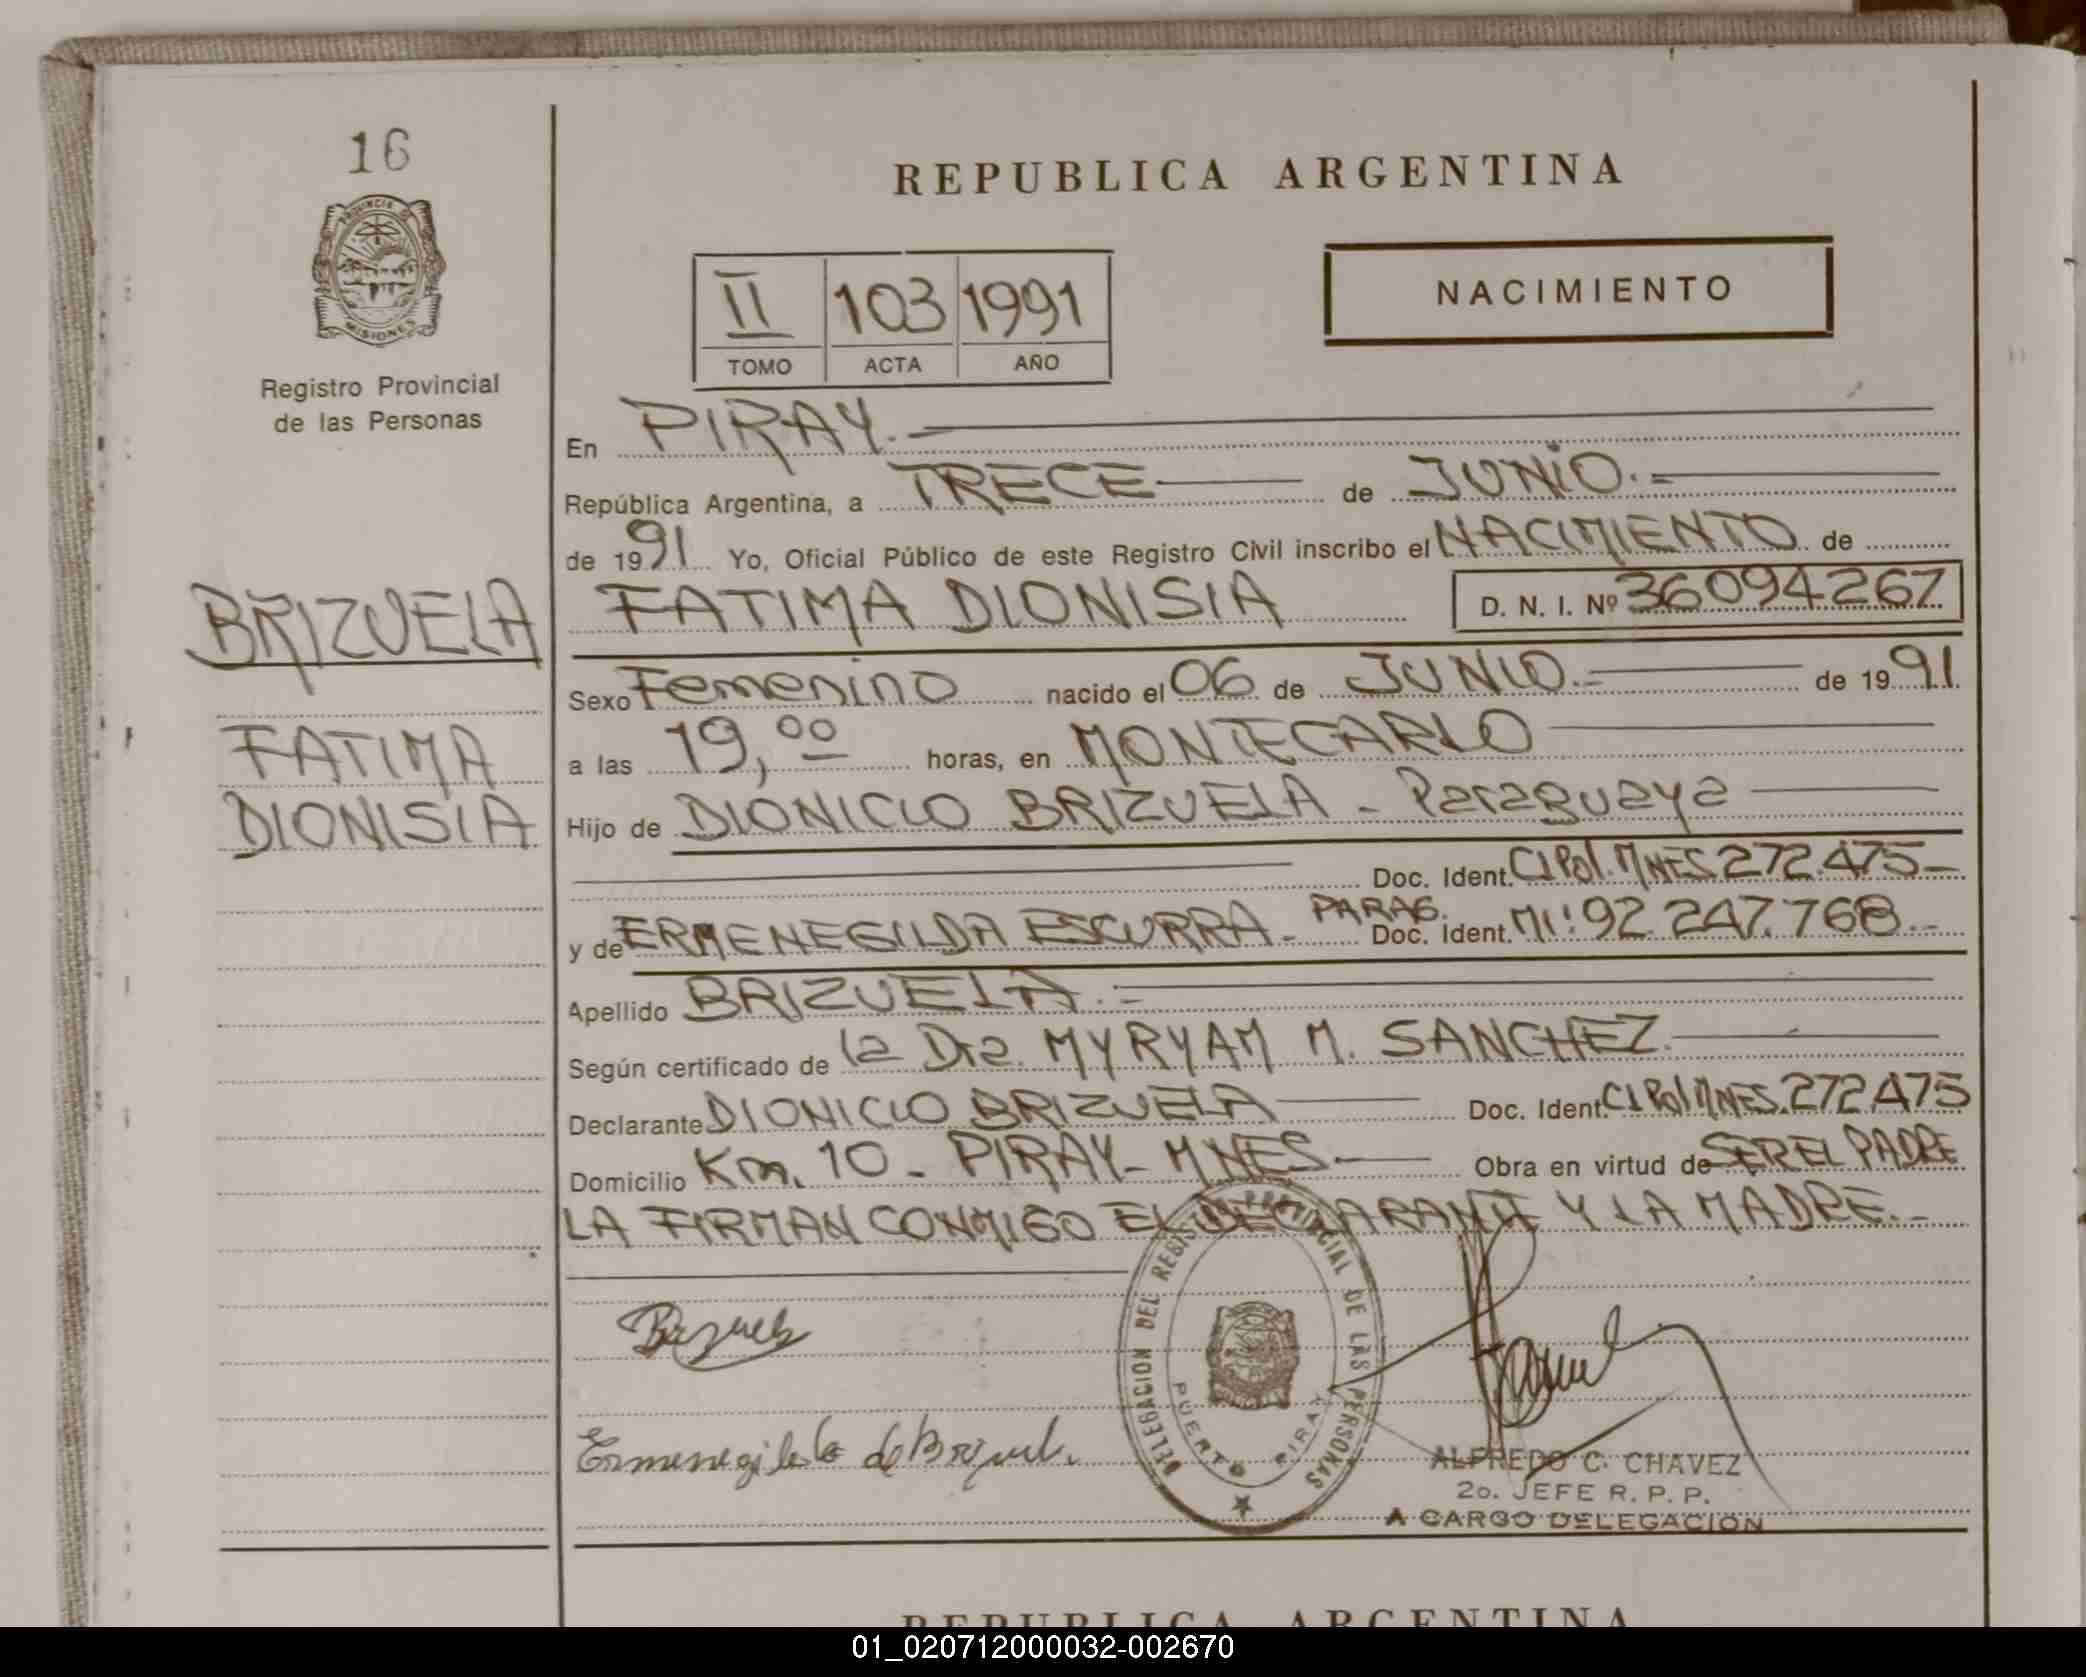 16
PROVINCIA DE
MISIONES
Registro Provincial
de las Personas
BRIZUELA
FATIMA
DIONISIA
REPUBLICA ARGENTINA
II 103 1991
TOMO ACTA AÑO
NACIMIENTO
En PIRAY.-
República Argentina, a TRECE de JUNIO.-
de 1991 Yo, Oficial Público de este Registro Civil inscribo el NACIMIENTO de
FATIMA DIONISIA D. N. I. Nº 36094267
Sexo Femenino nacido el 06 de JUNIO.- de 1991.
a las 19,00 horas, en MONTECARLO
Hijo de DIONICIO BRIZUELA - Paraguaya
Doc. Ident. CI Pol. MNES. 272.475-
y de ERMENEGILDA ESCURRA - PARAG. Doc. Ident. MI: 92.247.768.-
Apellido BRIZUELA.-
Según certificado de la Dra. MYRYAM M. SANCHEZ.
Declarante DIONICIO BRIZUELA Doc. Ident. CI Pol MNES. 272.475
Domicilio Km. 10 - PIRAY - MNES. Obra en virtud de SER EL PADRE
LA FIRMAN CONMIGO EL DECLARANTE Y LA MADRE.-
DELEGACION DEL REGISTRO PROVINCIAL DE LAS PERSONAS
PUERTO PIRAY
Ermenegilda de
ALFREDO C. CHAVEZ
2o. JEFE R. P. P.
A CARGO DELEGACION
REPUBLICA ARGENTINA
01_020712000032-002670